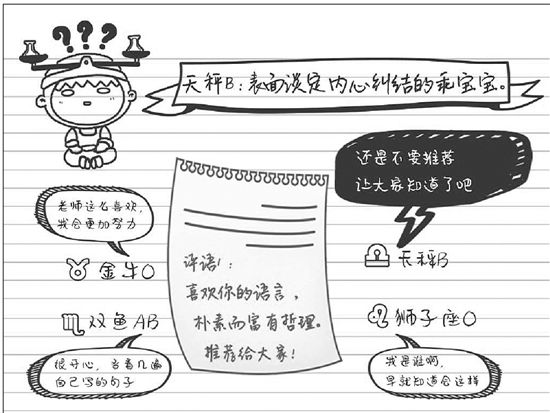 ???
天秤B：表面淡定内心纠结的乖宝宝。
还是不要推荐
让大家知道了吧
老师这么喜欢，
我会更加努力
金牛O
天秤B
评语：
喜欢你的语言，
朴素而富有哲理。
推荐给大家！
双鱼AB
狮子座O
很开心，查看几遍
自己写的句子
我是谁啊，
早就知道会这样